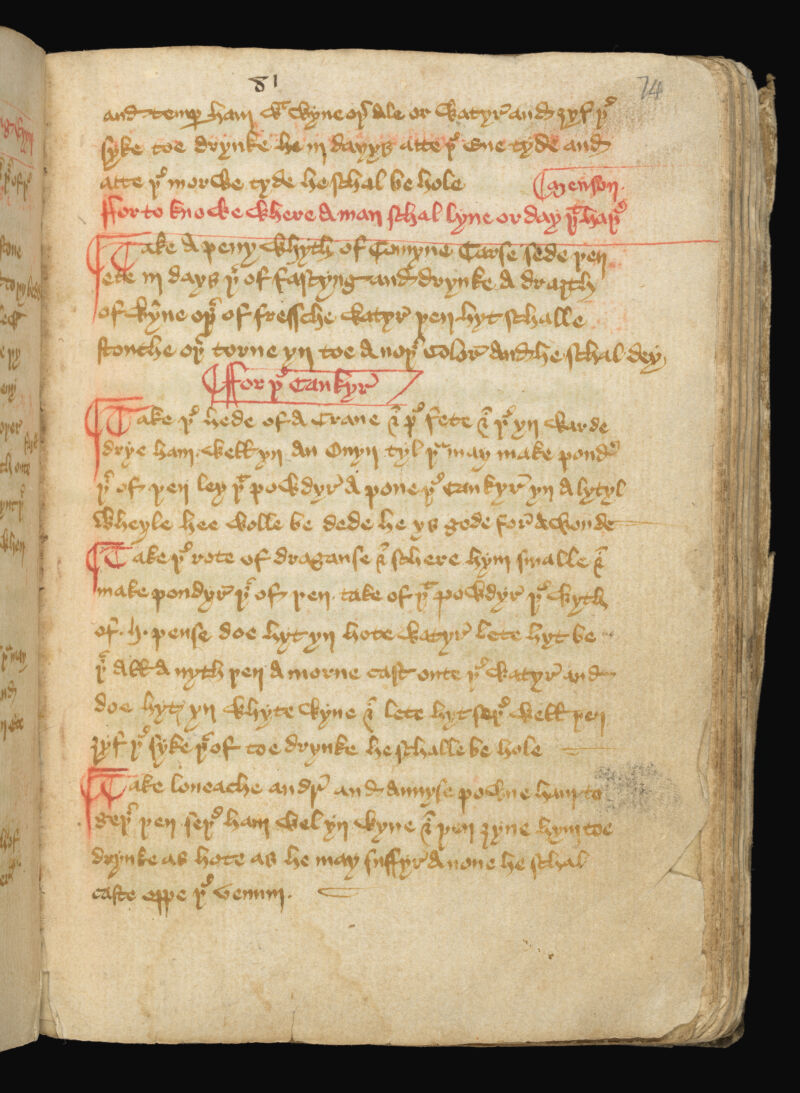 81
74
and temper ham wt wyne oþr ale or watyr and ȝyf þe
syke toe drynke he iij dayys atte þe eue tyde and
atte þe morwe tyde he schal be hole
menson
ffor to knowe where A man schal lyue or day þt haþe
Take A peny whyth of Comyne Carse sede þen
ete iij days þr of fastyng and drynke A draȝth
of wyne oþr of fressche watyr þen hyt schalle
stonche oþr torne yn toe A noþr Color and he schal dey
ffor þe Cankyr
Take þe hede of A Crane & þe fete & þe yn warde
drye ham well yn An Ovyn tyl þu may make poudr
þr of þen ley þt powdyr A pone þe Cankyr yn A lytyl
wheyle hee wolle be dede he ys gode for A wonde
Take þe rote of draganse & schere hym smalle &
make poudyr þr of þen take of þt powdyr þe wyth
of . ij . pense doe hyt yn hote watyr lete hyt be
þr All A nyth þen A morne cast oute þe watyr and
doe hyt yn whyte wyne & lete hyt seþe well þen
ȝyf þe syke þr of toe drynke he schalle be hole
Take loueache and and Annyse powne ham to
geþr þen seþe ham wel yn wyne & þen ȝyue hym toe
drynke as hote as he may suffyr Anone he schal
caste oppe þe venum .